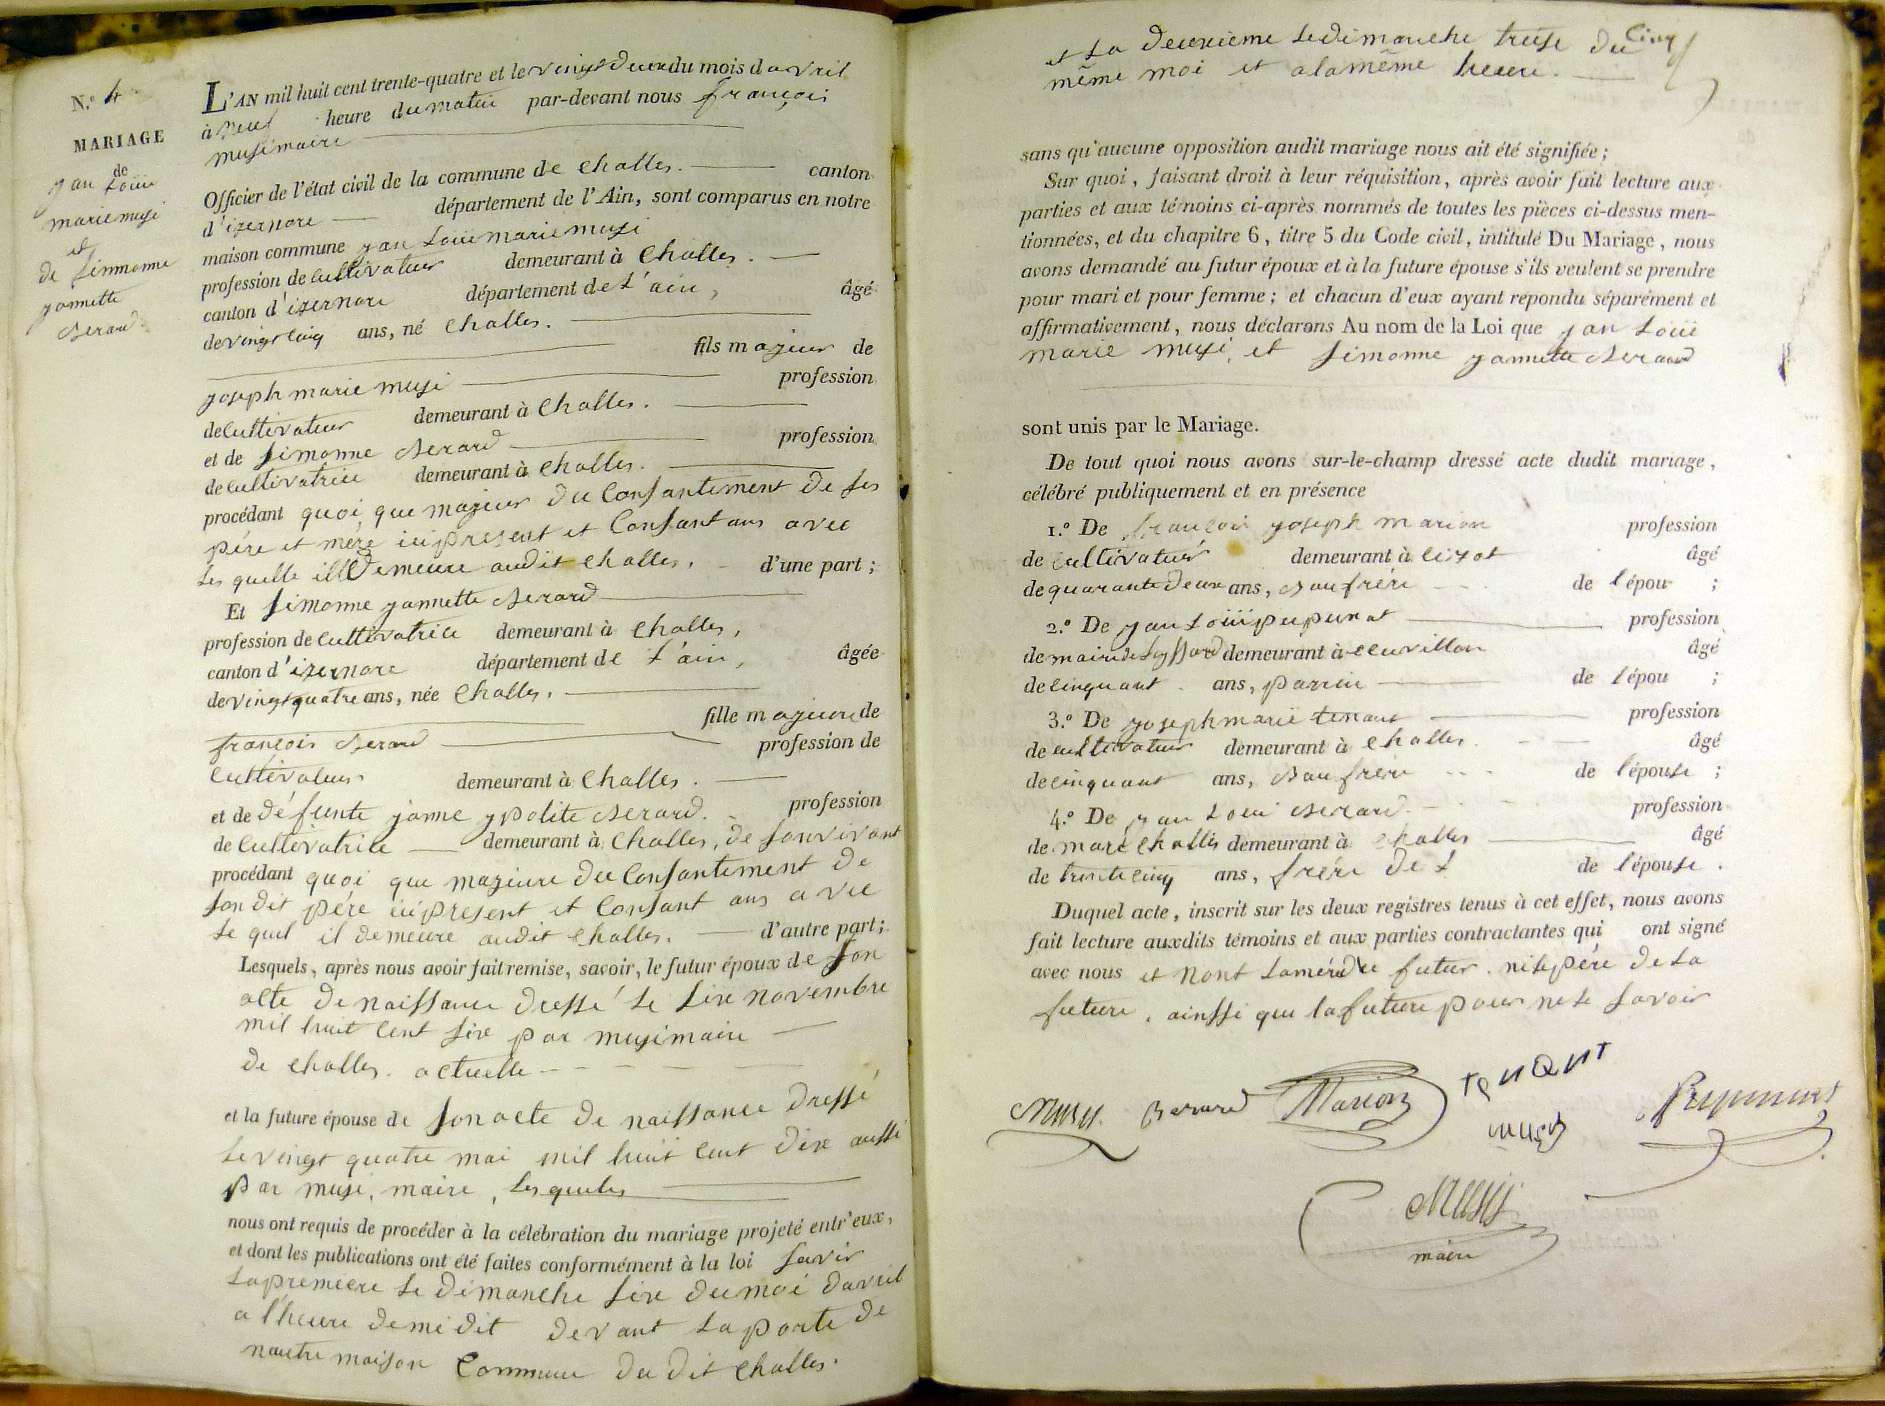 N.º 4
MARIAGE
de
jan Loüi
marie musi
et
de Simonne
jannette
Berard
L'AN mil huit cent trente-quatre et le vingt deux du mois davril
à neuf heure du matin par-devant nous françois
musi maire
Officier de l'état civil de la commune de Challes. canton
d'izernore département de l'Ain, sont comparus en notre
maison commune jan Loüi marie musi
profession de cultivateur demeurant à Challes.
canton d'izernore département de L'ain, âgé
de vingt cinq ans, né Challes.
fils majeur de
joseph marie musi profession
de cultivateur demeurant à Challes.
et de Simonne Berard profession
de cultivatrice demeurant à Challes.
procédant quoi que majeur du Consantement de ses
père et mère ici present et Consantans avec
Les quelle ill Demeure audit Challes. d'une part ;
Et Simonne jannette Berard
profession de cultivatrice demeurant à Challes,
canton d'izernore département de L'ain, âgée
de vingt quatre ans, née Challes.
fille majeure de
françois Berard profession de
cultivateur demeurant à Challes.
et de défunte janne ypolite Berard. profession
de cultivatrice demeurant à Challes, de sonvivant
procédant quoi que majeure du Consantement de
son dit père ici present et Consant ans avec
Le quel il demeure audit Challes. d'autre part ;
Lesquels, après nous avoir fait remise, savoir, le futur époux de Son
acte de naissance dressé Le Six novembre
mil huit Cent Six par musi maire
de Challes. actuelle
et la future épouse de Son acte de naissance dressé
Le vingt quatre mai mil huit Cent dix aussi
par musi, maire, Lesquels
nous ont requis de procéder à la célébration du mariage projeté entr'eux,
et dont les publications ont été faites conformément à la loi Savir
La premiere Le dimanche Six du moi davril
a l'heure de midit devant La porte de
nautre maison Commune du dit Challes.
et La deuxième Le dimanche treise du Cinq
même moi et a la même heure.
sans qu'aucune opposition audit mariage nous ait été signifiée ;
Sur quoi, faisant droit à leur réquisition, après avoir fait lecture aux
parties et aux témoins ci-après nommés de toutes les pièces ci-dessus men-
tionnées, et du chapitre 6, titre 5 du Code civil, intitulé Du Mariage, nous
avons demandé au futur époux et à la future épouse s'ils veulent se prendre
pour mari et pour femme ; et chacun d'eux ayant repondu séparément et
affirmativement, nous déclarons Au nom de la Loi que jan Loüi
marie musi et Simonne jannette Berard
sont unis par le Mariage.
De tout quoi nous avons sur-le-champ dressé acte dudit mariage,
célébré publiquement et en présence
1.º De françois joseph marion profession
de cultivateur demeurant à Cizot âgé
de quarante deux ans, Baufrère de l'épou ;
2.º De jan Loüi profession
de maire de demeurant à Cuvillon âgé
de cinquant ans, de l'épou ;
3.º De joseph marie tenant profession
de cultivateur demeurant à Challes. âgé
de cinquant ans, Baufrère de l'épouse ;
4.º De jan Loui Berard. profession
de maréchalles demeurant à Challes âgé
de trente cinq ans, frère De L de l'épouse.
Duquel acte, inscrit sur les deux registres tenus à cet effet, nous avons
fait lecture auxdits témoins et aux parties contractantes qui ont signé
avec nous et nont La mère du futur. ni Le père de La
future. ainssi que la future pour ne le Savoir
Musy. Berard Marion tenant
musy
Musy
maire